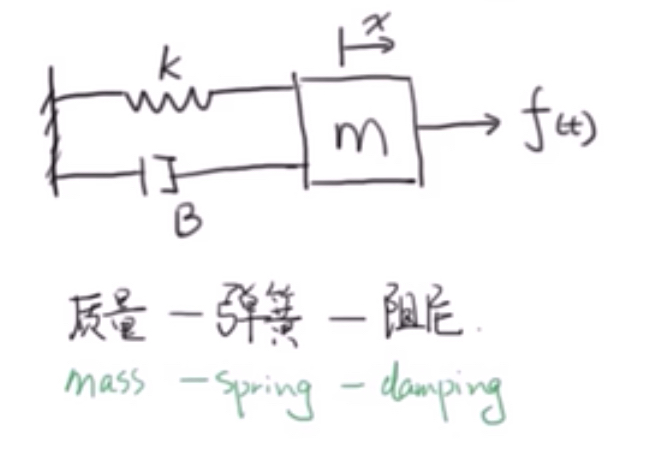 x
k
m
f(t)
B
质量 - 弹簧 - 阻尼.
mass - spring - damping